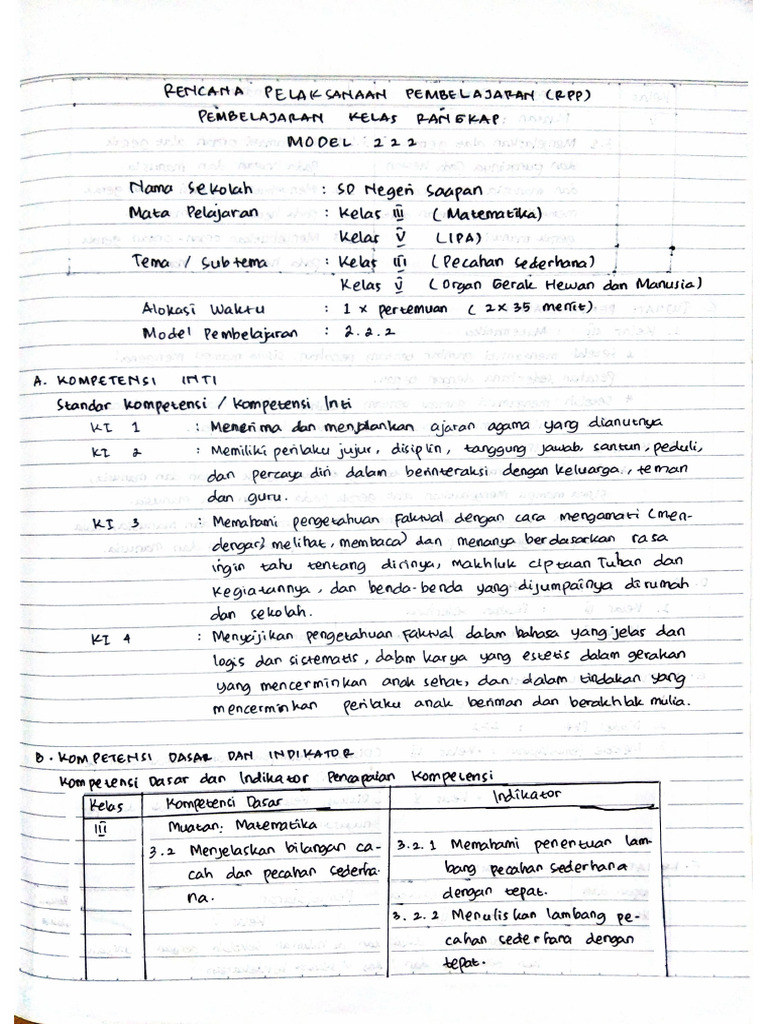 RENCANA PELAKSANAAN PEMBELAJARAN (RPP)
PEMBELAJARAN KELAS RANGKAP
MODEL 222
Nama Sekolah : SD Negeri Saapan
Mata Pelajaran : Kelas III (Matematika)
Kelas V (IPA)
Tema / Subtema : Kelas III (Pecahan Sederhana)
Kelas V (Organ Gerak Hewan dan Manusia)
Alokasi Waktu : 1 x pertemuan (2x35 menit).
Model Pembelajaran : 2.2.2
A. KOMPETENSI INTI
Standar Kompetensi / Kompetensi Inti
KI 1 : Menerima dan menjalankan ajaran agama yang dianutnya
KI 2 : Memiliki perilaku jujur, disiplin, tanggung jawab, santun, peduli,
dan percaya diri dalam berinteraksi dengan keluarga, teman
dan guru.
KI 3 : Memahami pengetahuan faktual dengan cara mengamati (men-
dengar} melihat, membaca) dan menanya berdasarkan rasa
ingin tahu tentang dirinya, makhluk ciptaan Tuhan dan
kegiatannya, dan benda-benda yang dijumpainya dirumah
dan sekolah.
KI 4 : Menyajikan pengetahuan faktual dalam bahasa yang jelas dan
logis dan sistematis, dalam karya yang estetis dalam gerakan
yang mencerminkan anak sehat, dan dalam tindakan yang
mencerminkan perilaku anak beriman dan berakhlak mulia.
B. KOMPETENSI DASAR DAN INDIKATOR
Kompetensi Dasar dan Indikator Pencapaian Kompetensi
Kelas Kompetensi Dasar Indikator
III Muatan: Matematika
3.2 Menjelaskan bilangan ca-
cah dan pecahan sederha-
na.
3.2.1 Memahami penentuan lam-
bang pecahan sederhana
dengan tepat.
3.2.2 Menuliskan lambang pe-
cahan sederhana dengan
tepat.